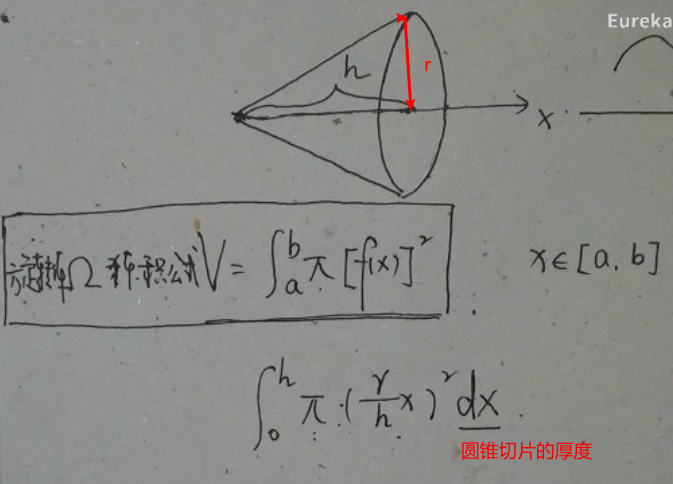 Eureka
h
r
x
旋转体Ω 体积公式 V = ∫_a^b π [f(x)]²
x ∈ [a, b]
∫_0^h π · (r/h x)² dx
圆锥切片的厚度